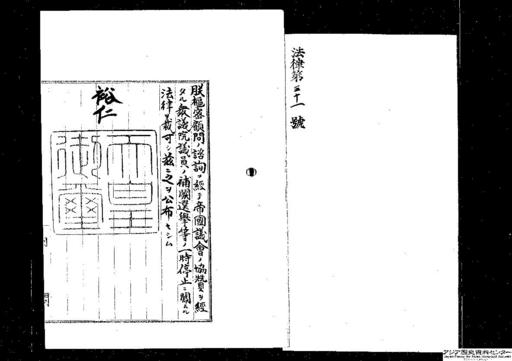 法律第三十一號
朕樞密顧問ノ諮詢ヲ經テ帝國議會ノ協贊ヲ經
タル衆議院議員ノ補闕選擧等ノ一時停止ニ關スル
法律ヲ裁可シ茲ニ之ヲ公布セシム
裕仁
天皇御璽
アジア歴史資料センター